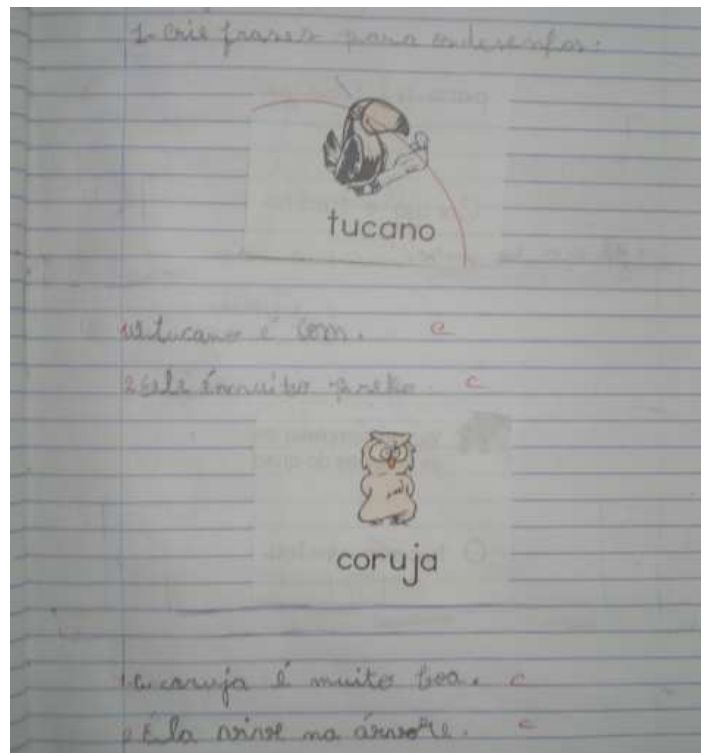 1- Crie frases para os desenhos:
tucano
1 O tucano é bom. c
2 Ele é muito preto. c
coruja
1. A coruja é muito boa. c
2 Éla vive na árvore. c